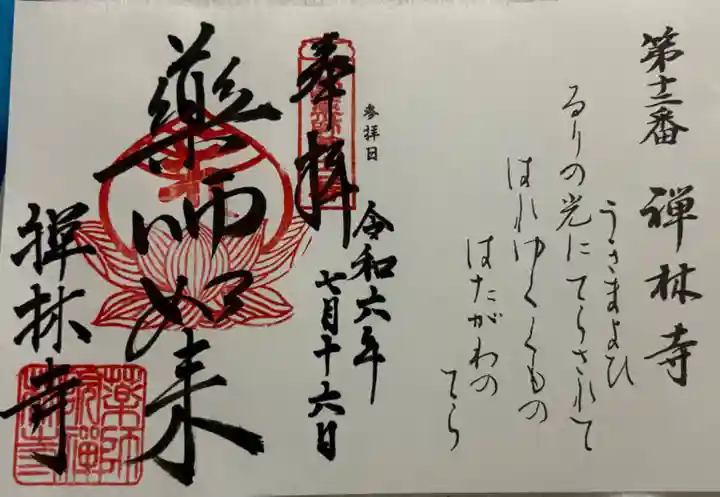 第十二番 禅林寺
るりの光にてらされて
うさまよひ
はれゆくくもの
はたがわの
てら
奉拝
参拝日
令和六年
七月十六日
薬師如来
禅林寺